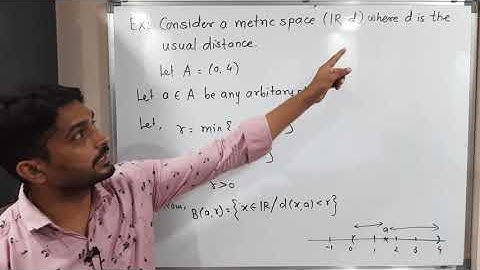 Ex: Consider a metric space (IR, d) where d is the
usual distance.
Let A = (0, 4)
Let a ∈ A be any arbitary
Let, r = min {
}
}
r>0
B(a,r) = {x∈IR/d(x,a)<r}
a
-1 0 1 2 3 4